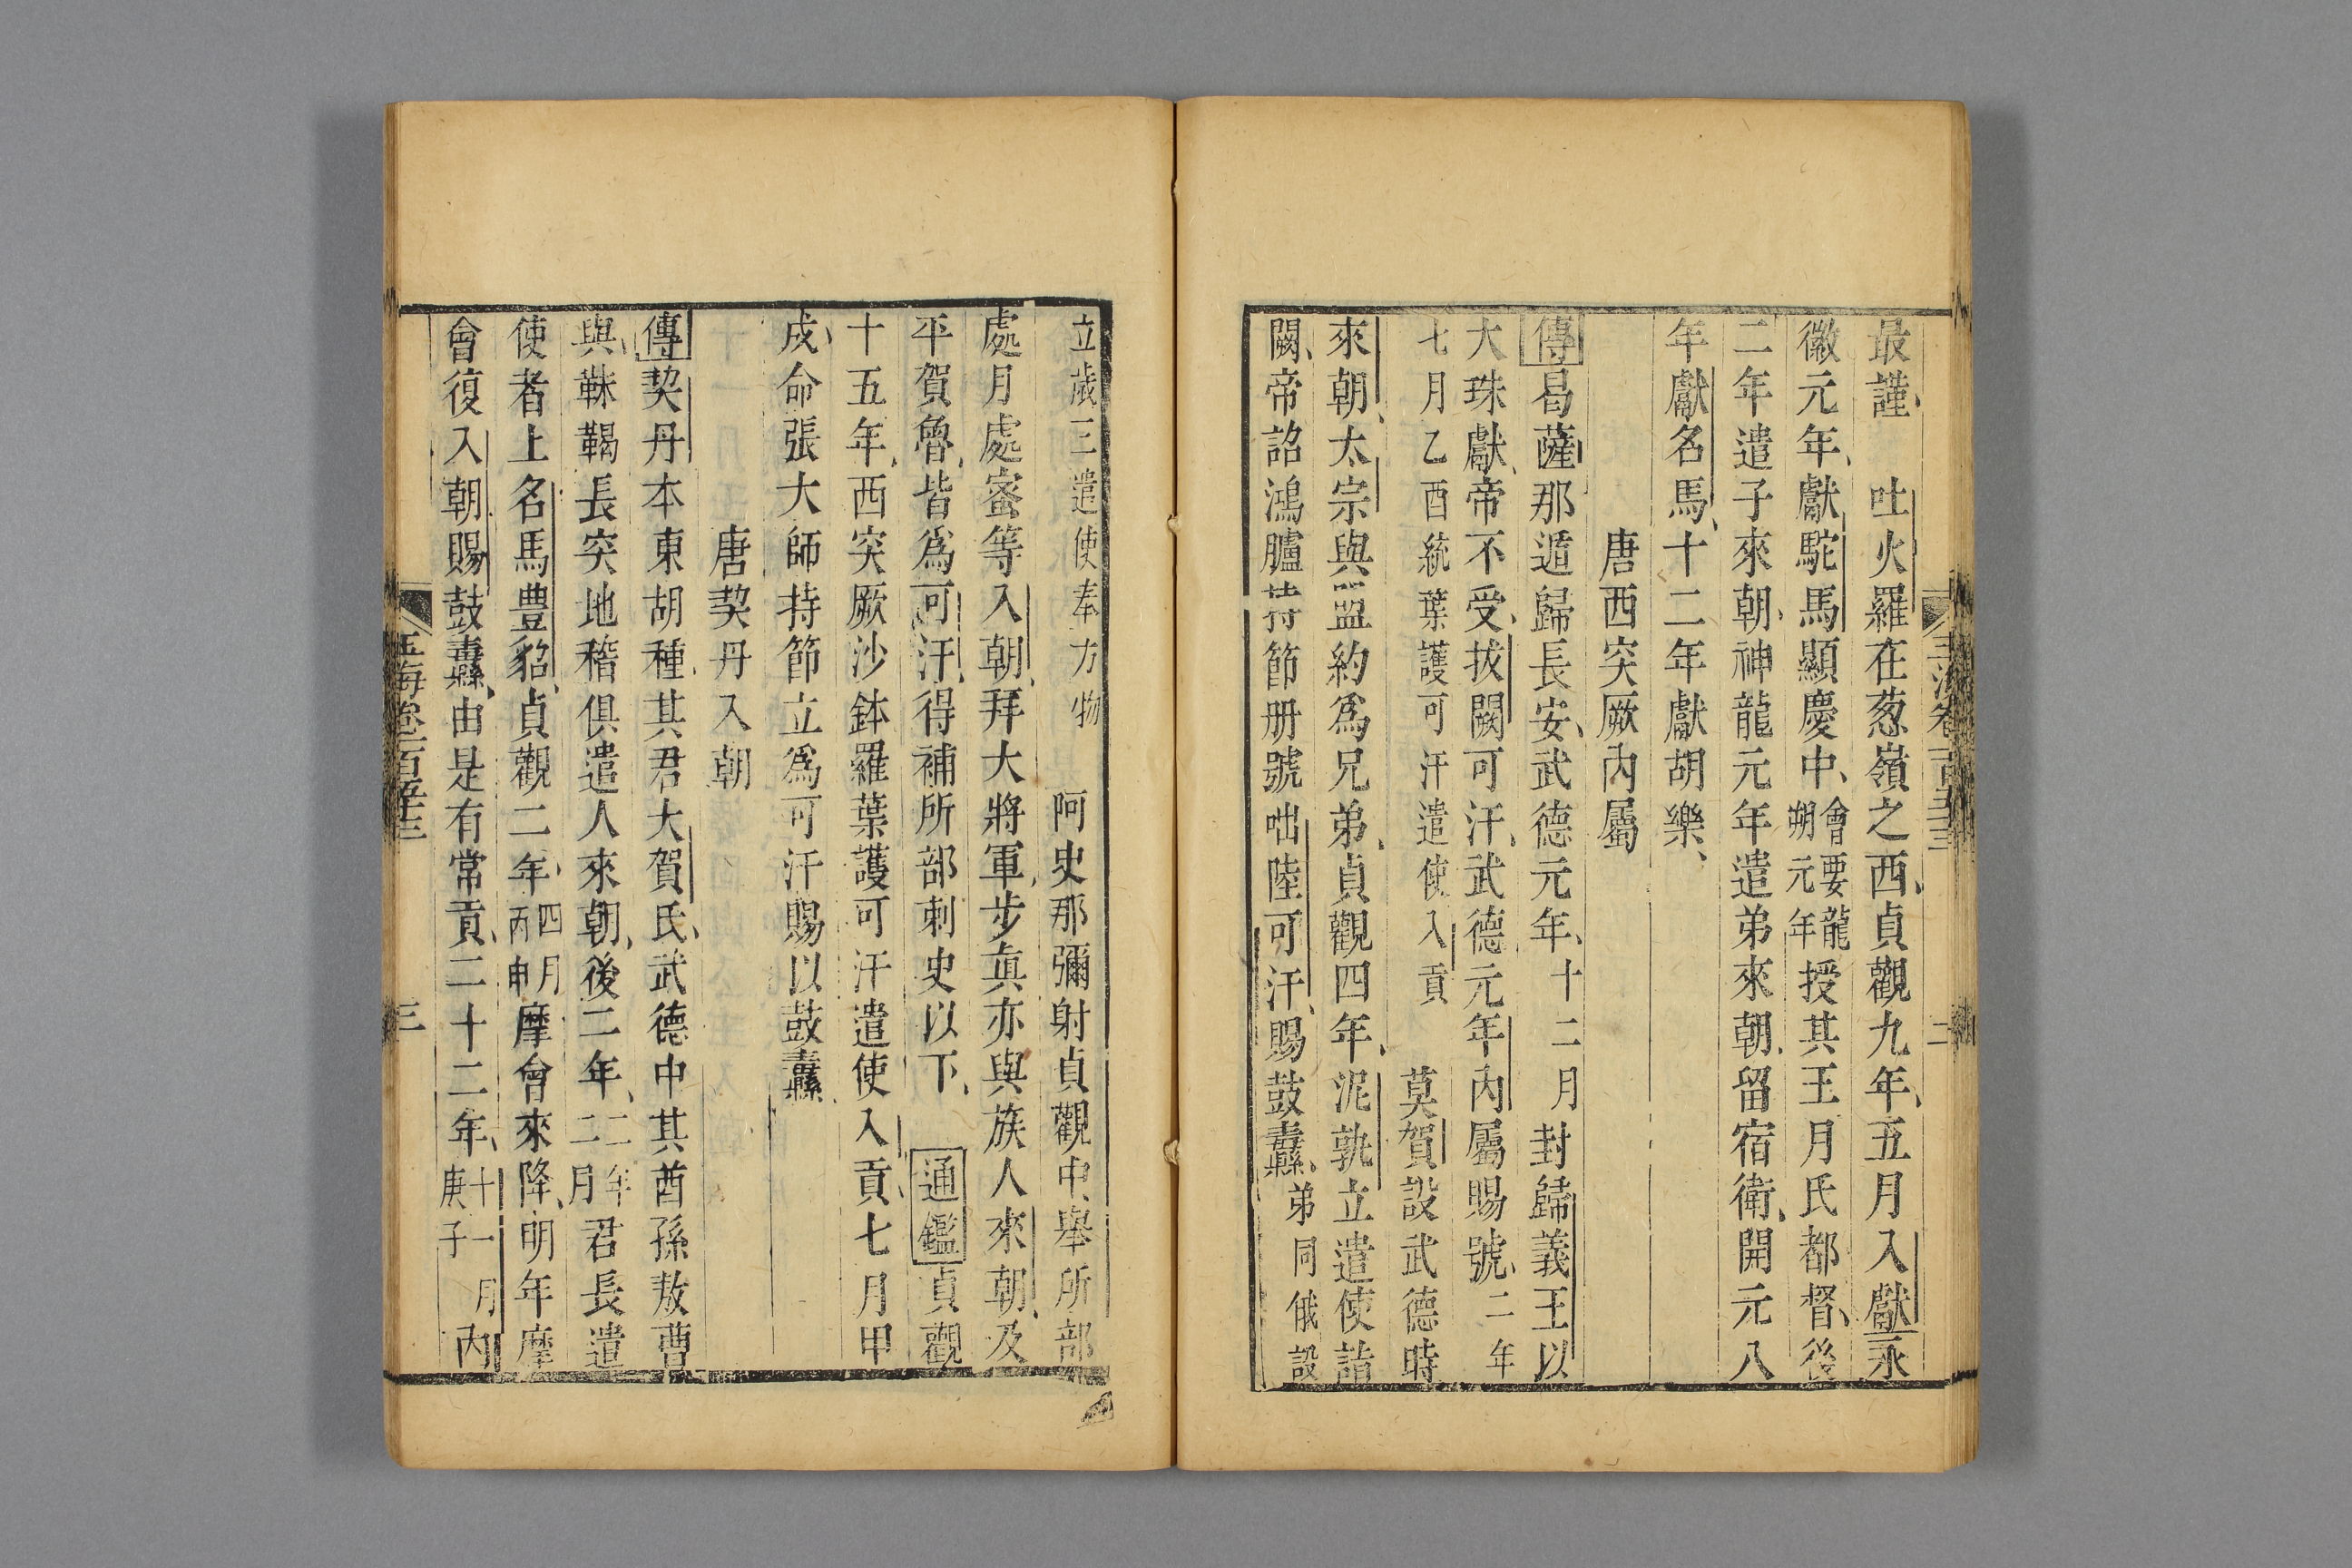 最謹　吐火羅在葱嶺之西貞觀九年五月入獻永
徽元年獻駝馬顯慶中會要龍朔元年授其王月氏都督後
二年遣子來朝神龍元年遣弟來朝留宿衛開元八
年獻名馬十二年獻胡樂
唐西突厥內屬
傳曷薩那遁歸長安武德元年十二月封歸義王以
大珠獻帝不受拔闕可汗武德元年內屬賜號二年
七月乙酉統葉護可汗遣使入貢　莫賀設武德時
來朝太宗與盟約爲兄弟貞觀四年泥孰立遣使詣
闕帝詔鴻臚持節册號咄陸可汗賜鼓纛弟同俄設
立歲三遣使奉方物　阿史那彌射貞觀中舉所部
處月處蜜等入朝拜大將軍步眞亦與族人來朝及
平賀魯皆爲可汗得補所部刺史以下　通鑑貞觀
十五年西突厥沙鉢羅葉護可汗遣使入貢七月甲
戌命張大師持節立爲可汗賜以鼓纛
唐契丹入朝
傳契丹本東胡種其君大賀氏武德中其酋孫敖曹
與靺鞨長突地稽俱遣人來朝後二年二年二月君長遣
使者上名馬豊貂貞觀二年四月丙申摩會來降明年摩
會復入朝賜鼓纛由是有常貢二十二年十一月庚子內
玉海卷一百五十三
三